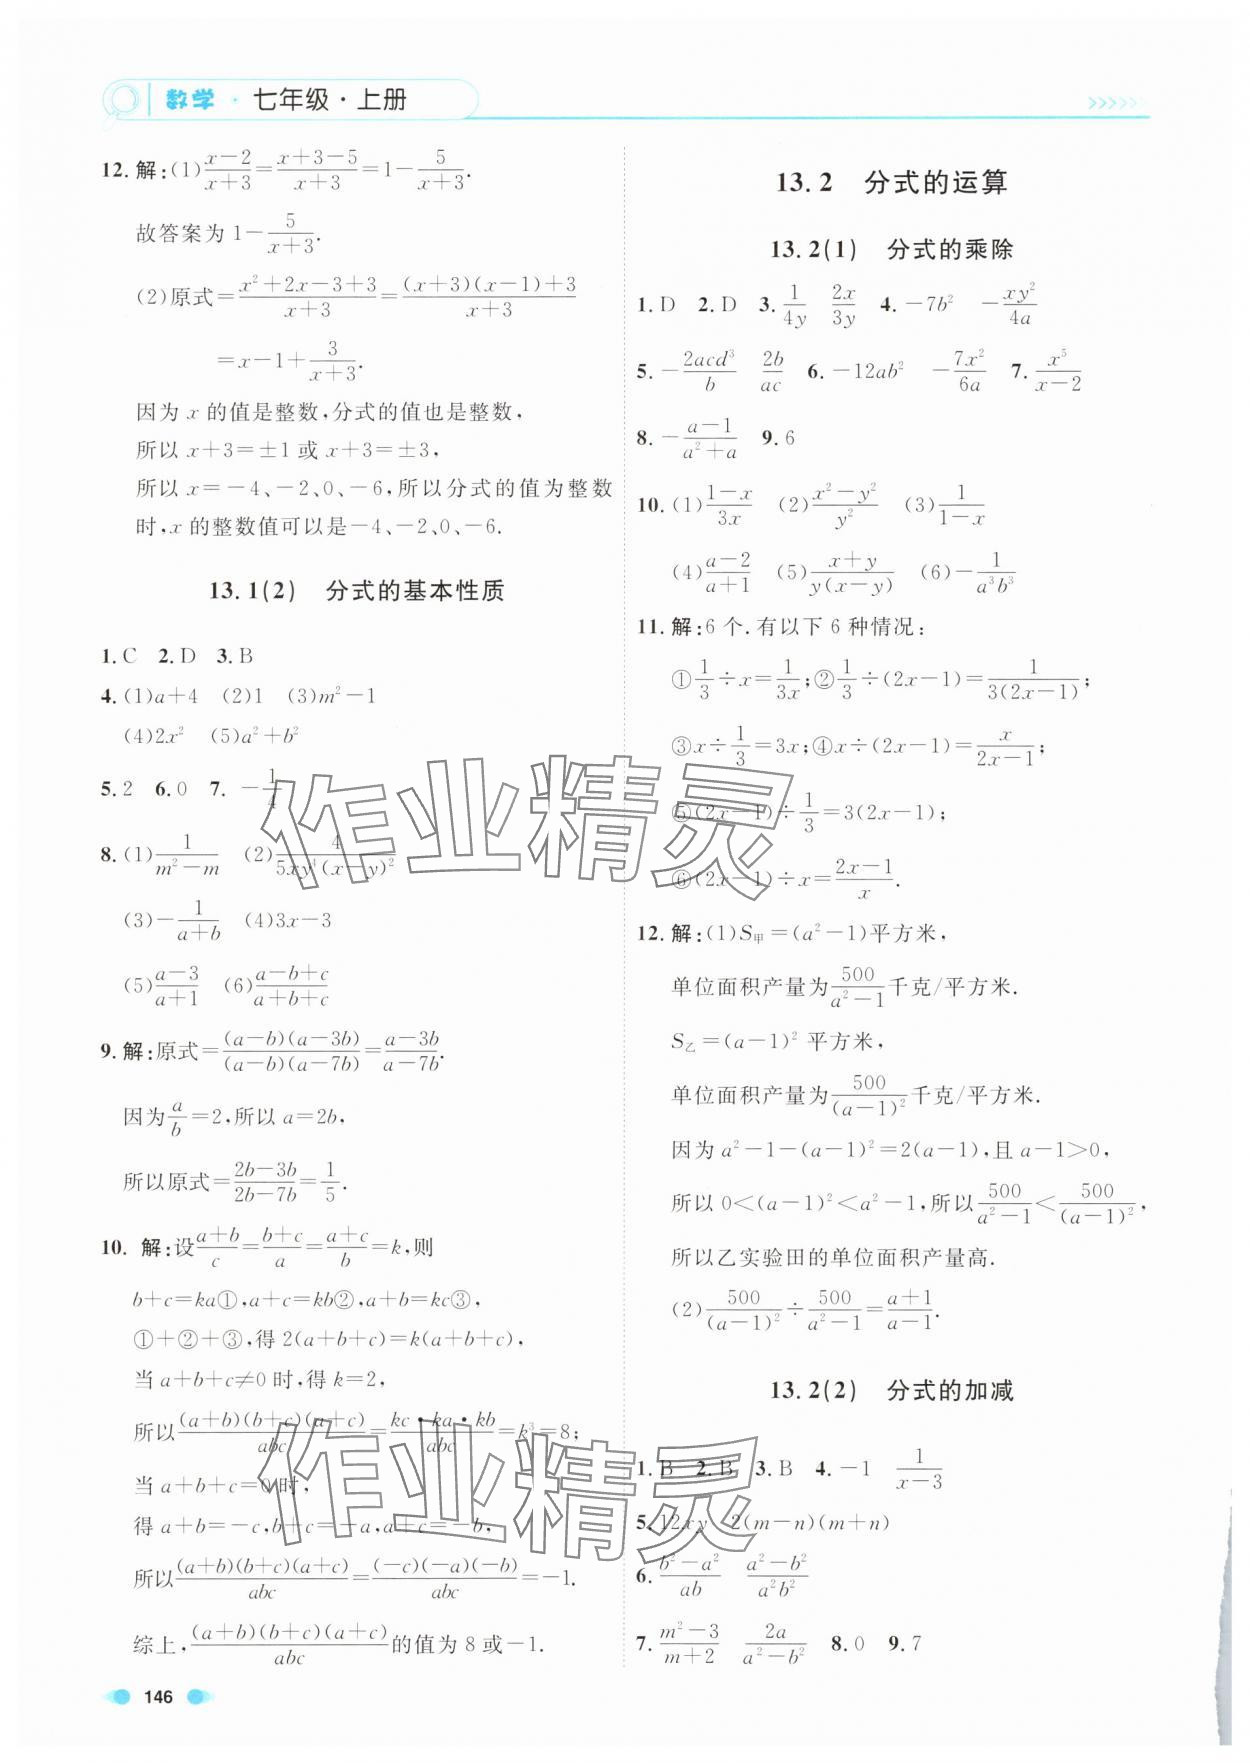 数学·七年级·上册
12.解:(1)\frac{x-2}{x+3}=\frac{x+3-5}{x+3}=1-\frac{5}{x+3}.
故答案为1-\frac{5}{x+3}.
(2)原式=\frac{x²+2x-3+3}{x+3}=\frac{(x+3)(x-1)+3}{x+3}
=x-1+\frac{3}{x+3}.
因为x的值是整数,分式的值也是整数,
所以x+3=±1或x+3=±3,
所以x=-4、-2、0、-6,所以分式的值为整数
时,x的整数值可以是-4、-2、0、-6.
13.1(2) 分式的基本性质
1.C 2.D 3.B
4.(1)a+4 (2)1 (3)m²-1
(4)2x² (5)a²+b²
5.2 6.0 7.-\frac{1}{4}
8.(1)\frac{1}{m²-m} (2)\frac{4}{5xy⁴(x-y)²}
(3)-\frac{1}{a+b} (4)3x-3
(5)\frac{a-3}{a+1} (6)\frac{a-b+c}{a+b+c}
9.解:原式=\frac{(a-b)(a-3b)}{(a-b)(a-7b)}=\frac{a-3b}{a-7b}.
因为\frac{a}{b}=2,所以a=2b,
所以原式=\frac{2b-3b}{2b-7b}=\frac{1}{5}.
10. 解:设\frac{a+b}{c}=\frac{b+c}{a}=\frac{a+c}{b}=k,则
b+c=ka①,a+c=kb②,a+b=kc③,
①+②+③,得2(a+b+c)=k(a+b+c),
当a+b+c≠0时,得k=2,
所以\frac{(a+b)(b+c)(a+c)}{abc}=\frac{kc·ka·kb}{abc}=k³=8;
当a+b+c=0时,
得a+b=-c,b+c=-a,a+c=-b,
所以\frac{(a+b)(b+c)(a+c)}{abc}=\frac{(-c)(-a)(-b)}{abc}=-1.
综上,\frac{(a+b)(b+c)(a+c)}{abc}的值为8或-1.
146
13.2 分式的运算
13.2(1) 分式的乘除
1.D 2.D 3.\frac{1}{4y} \frac{2x}{3y} 4.-7b² -\frac{xy²}{4a}
5.-\frac{2acd³}{b} \frac{2b}{ac} 6.-12ab² -\frac{7x²}{6a} 7.\frac{x⁵}{x-2}
8.-\frac{a-1}{a²+a} 9.6
10.(1)\frac{1-x}{3x} (2)\frac{x²-y²}{y²} (3)\frac{1}{1-x}
(4)\frac{a-2}{a+1} (5)\frac{x+y}{y(x-y)} (6)-\frac{1}{a³b³}
11.解:6个.有以下6种情况:
①\frac{1}{3}÷x=\frac{1}{3x};②\frac{1}{3}÷(2x-1)=\frac{1}{3(2x-1)};
③x÷\frac{1}{3}=3x;④x÷(2x-1)=\frac{x}{2x-1};
⑤(2x-1)÷\frac{1}{3}=3(2x-1);
⑥(2x-1)÷x=\frac{2x-1}{x}.
12.解:(1)S甲=(a²-1)平方米,
单位面积产量为\frac{500}{a²-1}千克/平方米.
S乙=(a-1)²平方米,
单位面积产量为\frac{500}{(a-1)²}千克/平方米.
因为a²-1-(a-1)²=2(a-1),且a-1>0,
所以0<(a-1)²<a²-1,所以\frac{500}{a²-1}<\frac{500}{(a-1)²},
所以乙实验田的单位面积产量高.
(2)\frac{500}{(a-1)²}÷\frac{500}{a²-1}=\frac{a+1}{a-1}.
13.2(2) 分式的加减
1.B 2.B 3.B 4.-1 \frac{1}{x-3}
5.12xy 2(m-n)(m+n)
6.\frac{b²-a²}{ab} \frac{a²-b²}{a²b²}
7.\frac{m²-3}{m+2} \frac{2a}{a²-b²} 8.0 9.7
作业精灵
作业精灵